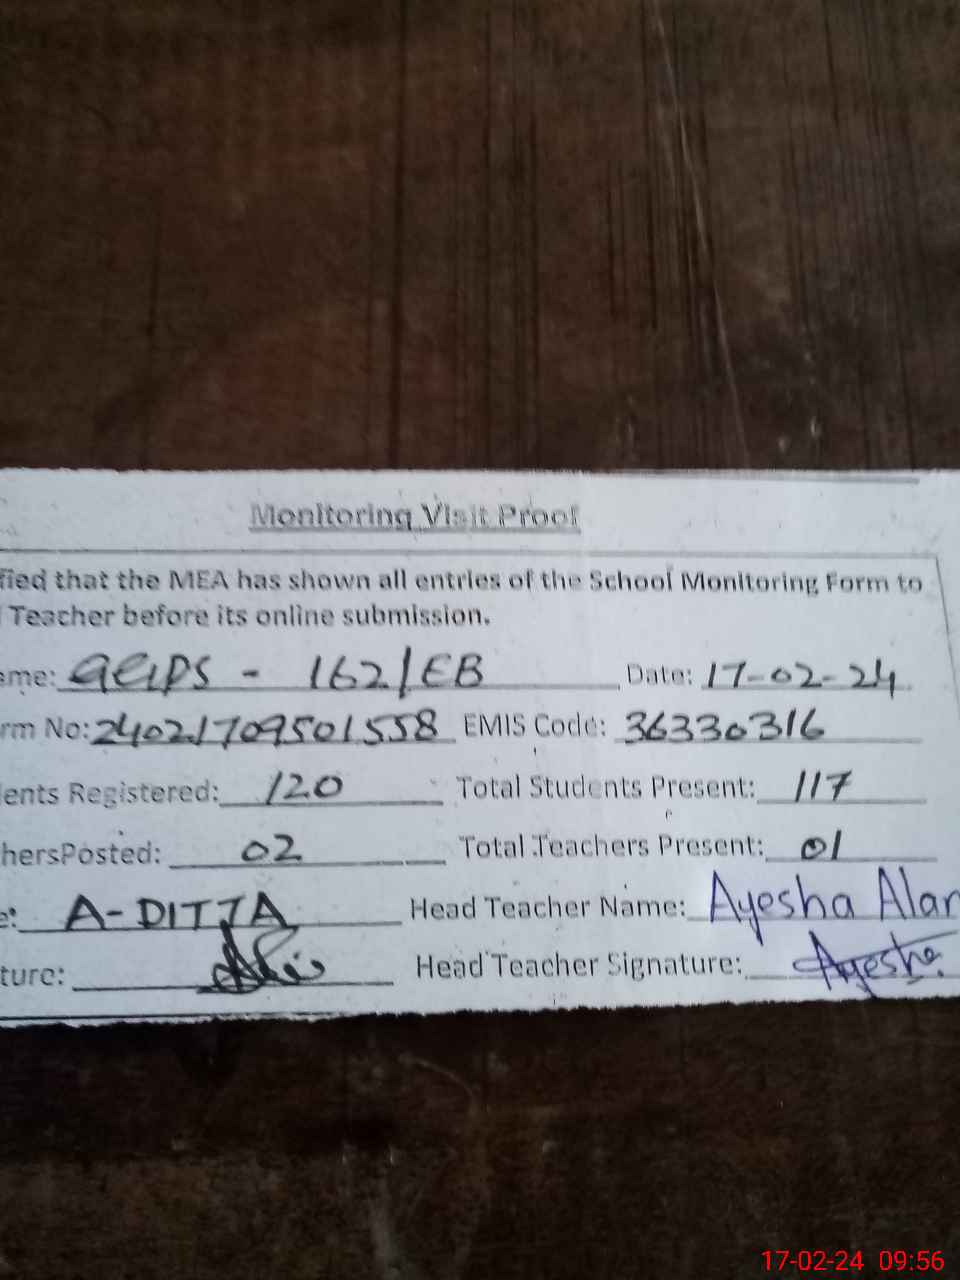 Monitoring Visit Proof
fied that the MEA has shown all entries of the School Monitoring Form to
Teacher before its online submission.
ame: GGPS - 162/EB Date: 17-02-24
rm No: 24021709501558 EMIS Code: 36330316
ents Registered: 120 Total Students Present: 117
hersPosted: 02 Total Teachers Present: 01
e: A-DITTA Head Teacher Name: Ayesha Alam
ture: Head Teacher Signature: Ayesha
17-02-24 09:56